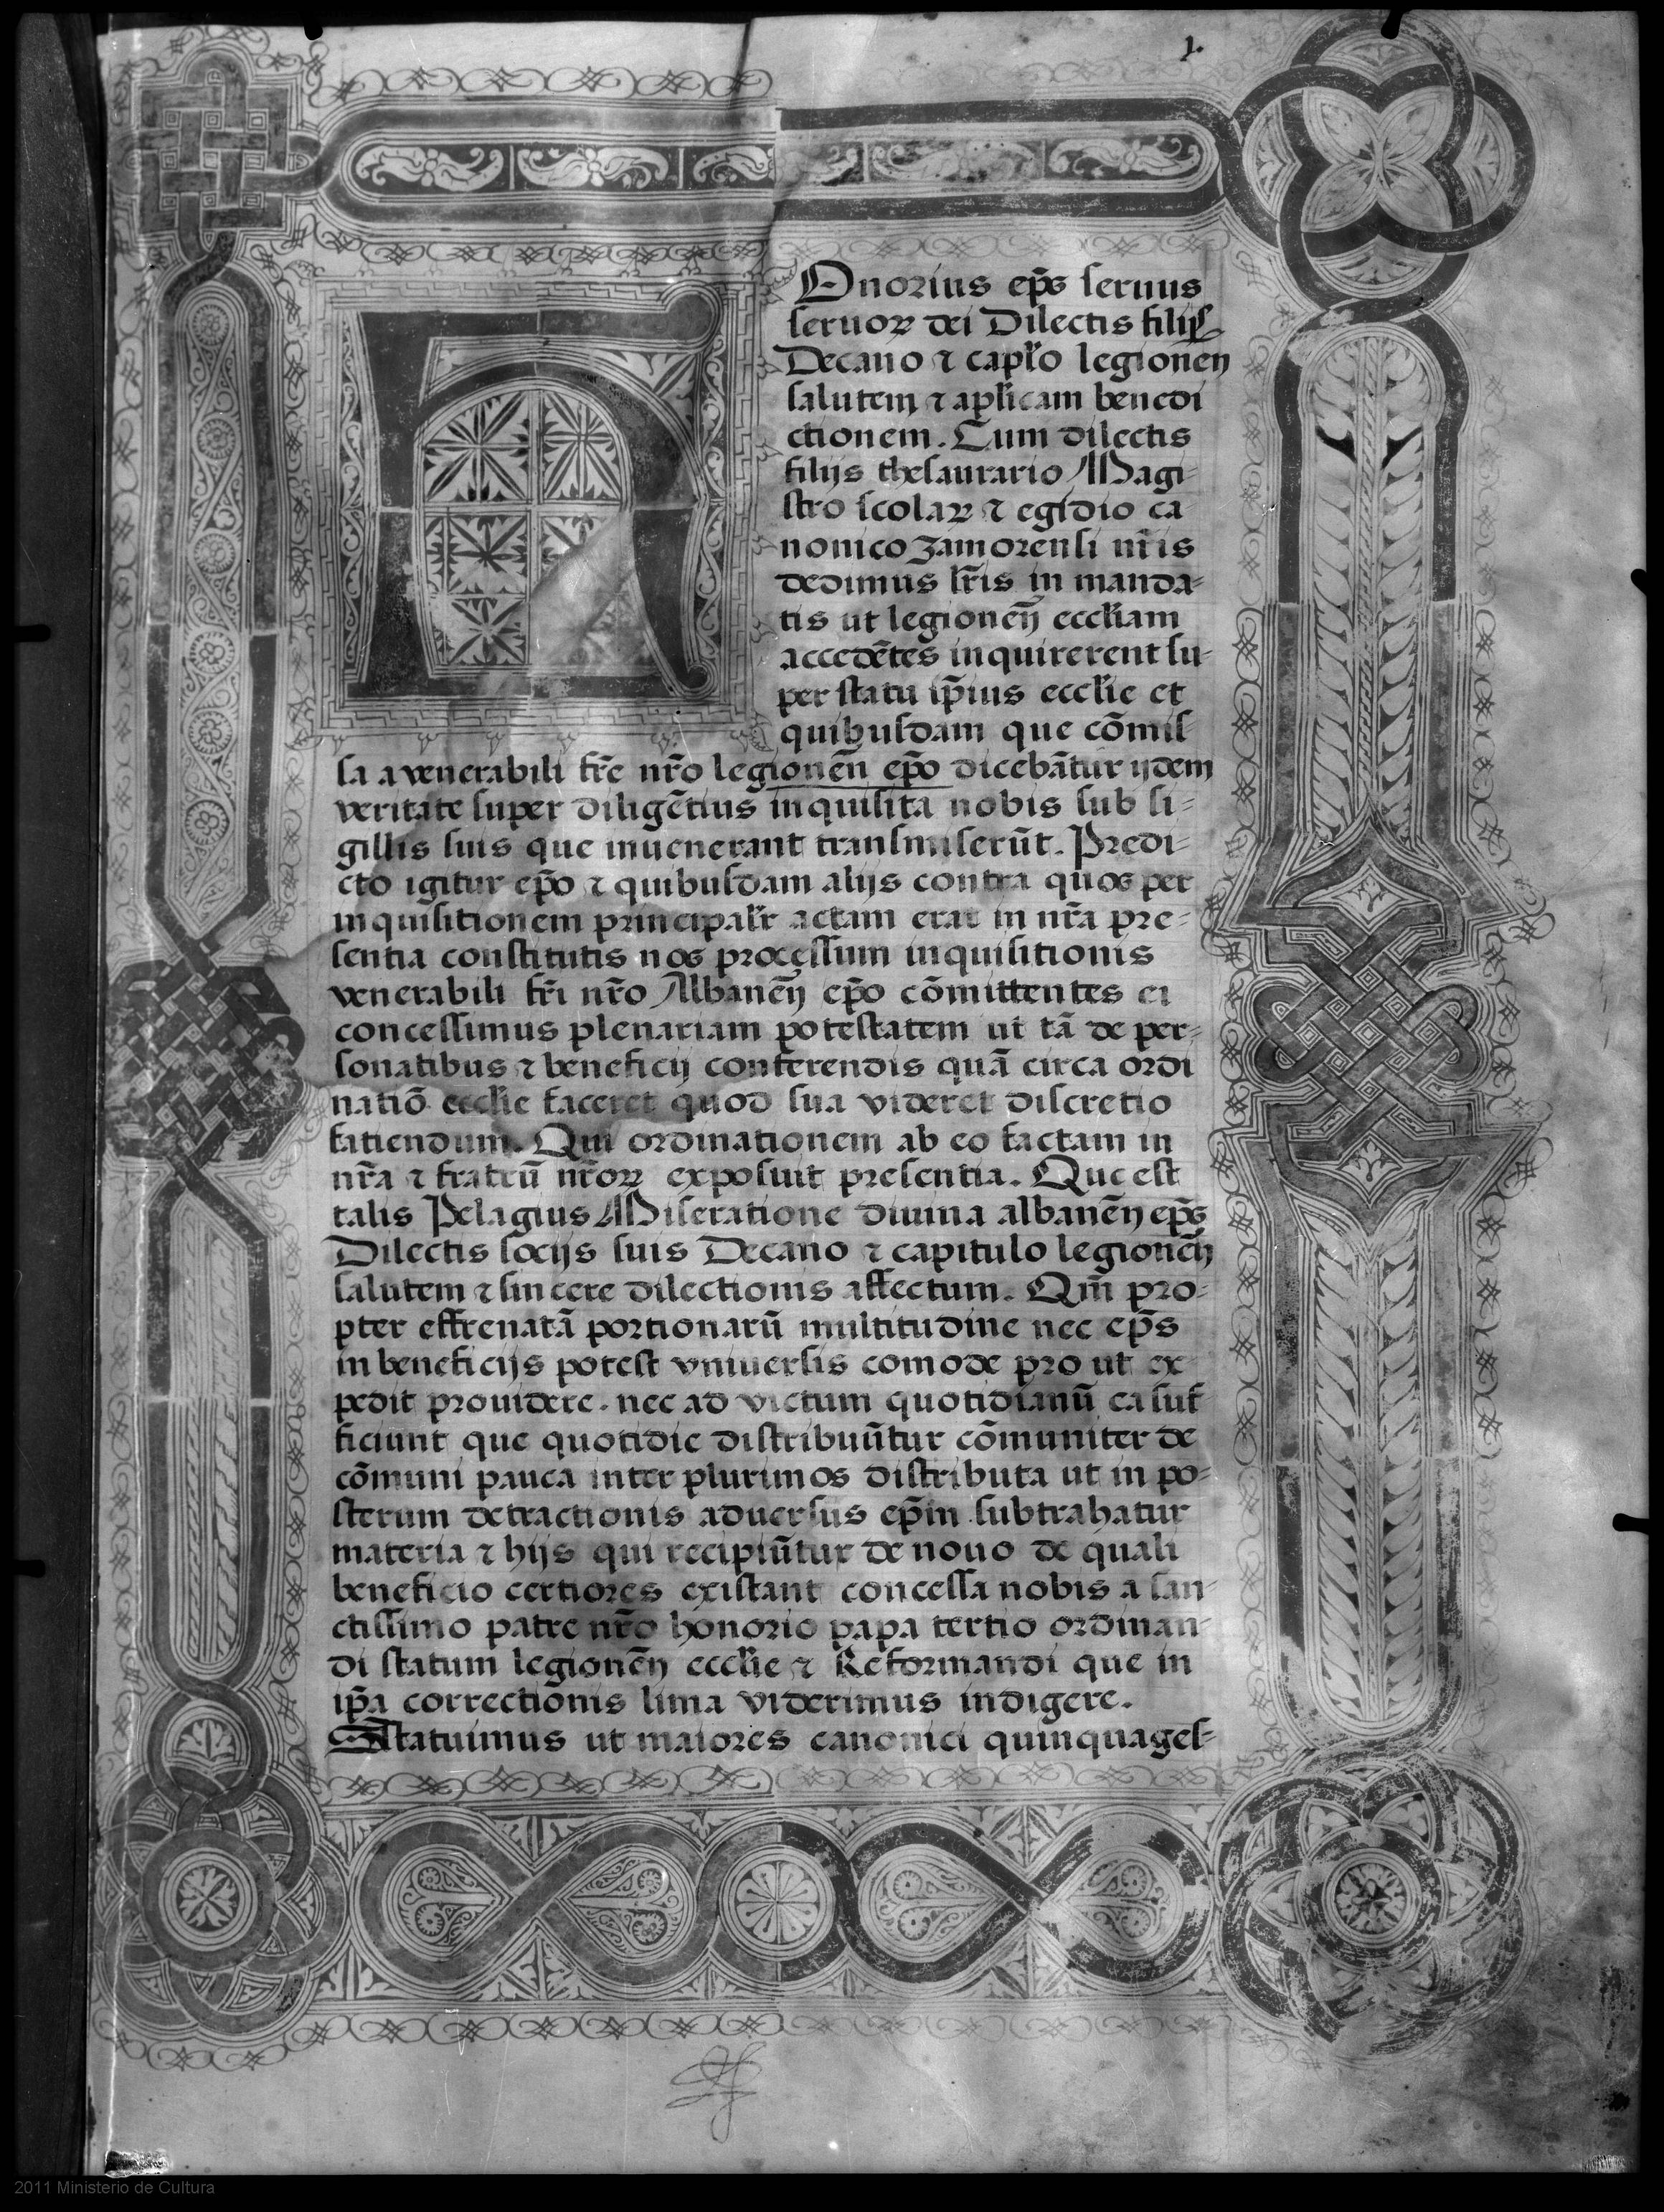 1.
HOnorius ep̃s seruus
seruoꝝ dei Dilectis filijs
Decano ⁊ capľo legioneñ
salutem ⁊ apľicam benedi
ctionem. Cum dilectis
filijs thesaurario Magi-
stro scolaꝝ ⁊ egidio ca-
nonico zamorensi nr̃is
dedimus lr̃is in manda-
tis ut legioneñ eccľiam
accedẽtes inquirerent su-
per statu ip̃ius eccľie et
quibusdam que cõmis-
sa a venerabili fr̃e nr̃o legioneñ ep̃o dicebãtur ijdem
veritate super diligẽtius inquisita nobis sub si-
gillis suis que inuenerant transmiserũt. Predi-
cto igitur ep̃o ⁊ quibusdam alijs contra quos per
inquisitionem principalr̃ actam erat in nr̃a pre-
sentia constitutis nos processum inquisitionis
venerabili fr̃i nr̃o Albaneñ ep̃o cõmittentes ei
concessimus plenariam potestatem ut tã de per-
sonatibus ⁊ beneficij conferendis quã circa ordi
natiõ eccľie faceret quod sua videret discretio
fatiendum. Qui ordinationem ab eo factam in
nr̃a ⁊ fratrũ nr̃oꝝ exposuit presentia. Que est
talis Pelagius Miseratione diuina albaneñ ep̃s
Dilectis socijs suis Decano ⁊ capitulo legioneñ
salutem ⁊ sincere dilectionis affectum. Qm̃ pro-
pter effrenatã portionarũ multitudine nec ep̃s
in beneficijs potest vniuersis comode pro ut ex-
pedit prouidere. nec ad victum quotidianũ ea suf-
ficiunt que quotidie distribuũtur cõmuniter de
cõmuni pauca inter plurimos distributa ut in po-
sterum detractionis aduersus ep̃m subtrahatur
materia ⁊ hijs qui recipiũtur de nouo de quali
beneficio certiores existant concessa nobis a san-
ctissimo patre nr̃o honorio papa tertio ordinan-
di statum legioneñ eccľie ⁊ Reformandi que in
ip̃a correctionis lima viderimus indigere.
Statuimus ut maiores canonici quinquages-
2011 Ministerio de Cultura